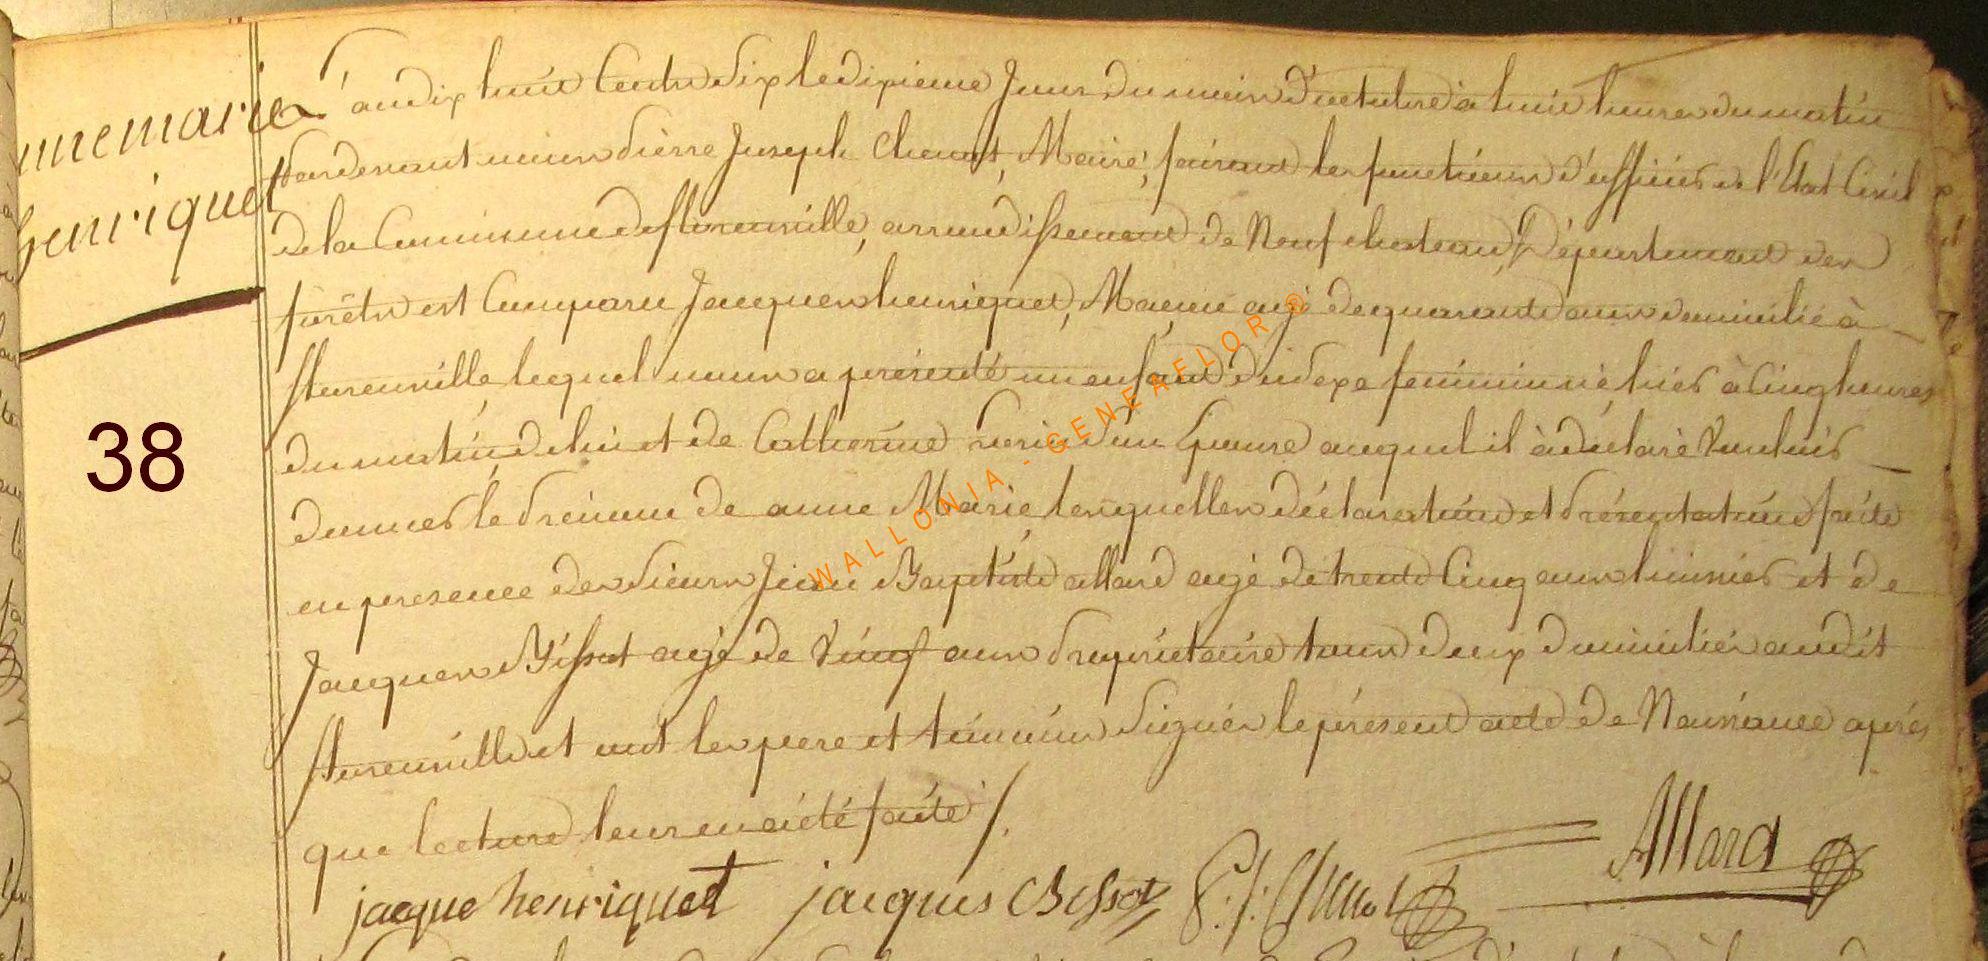 L'an dix huit Cents Six le dixieme Jour du mois d'octobre à huit heures du matin
Pardevant nous Pierre Joseph Chenot, Maire, faisant les fonctions d'officier de l'Etat Civil
de la Commune de florenville, arrondissement de Neufchateau, Département des
forêts est Comparu Jacques henriquet, Maçon agé de quarante ans domicilié à
florenville, lequel nous a présenté un enfant du sexe feminin né hier à Cinq heures
du matin de lui et de Catherine son Epouse auquel il à déclaré Vouloir
donner le Prénom de anne Marie, lesquelles déclaration et Présentation faite
en presence des Sieurs Jean Baptiste allard agé de trente Cinq ans huissier et de
Jacques Bissot agé de ans Propriétaire tous deux domiciliés audit
florenville et ont les pere et témoins Signés le présent acte de Naissance après
que lecture leur en a été faite /.
jacque henriquet jacques Bissot P. J. Chenot Allard
nnemarie
henriquet
38
WALLONIA - GENEAELOR ®